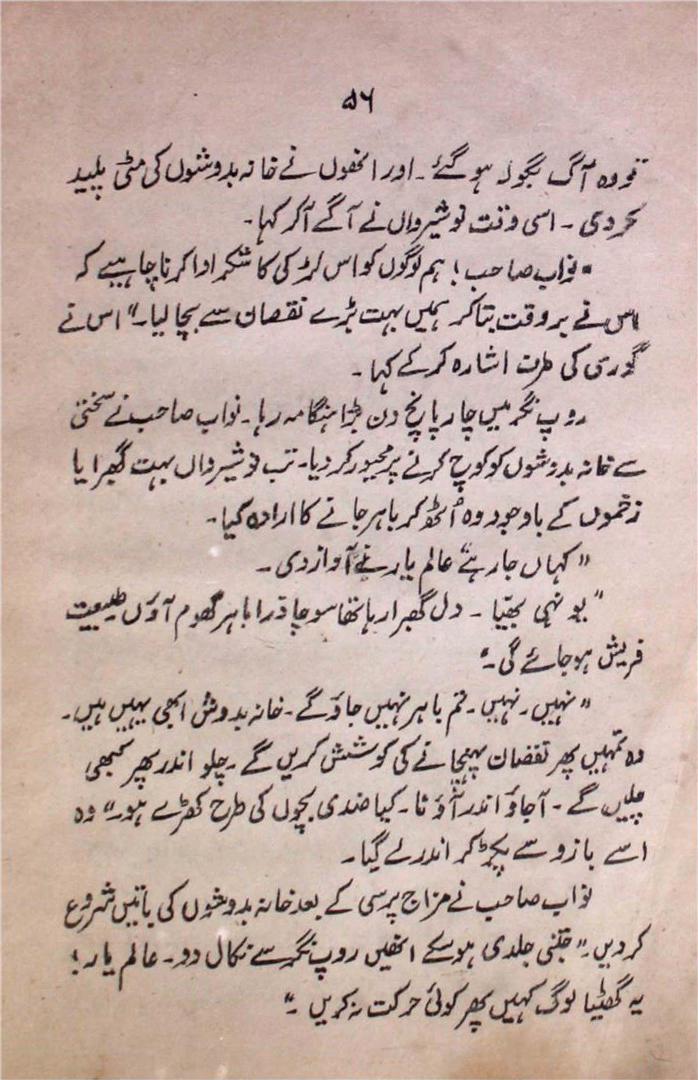 ۵۶
تو وہ آگ بگولہ ہو گئے ۔ اور انھوں نے خانہ بدوشوں کی مٹی پلید
کر دی ۔ اسی وقت نوشیرواں نے آگے آ کر کہا ۔
" نواب صاحب ! ہم لوگوں کو اس لڑکی کا شکر ادا کرنا چاہیے کہ
اس نے بروقت بتا کر ہمیں بہت بڑے نقصان سے بچا لیا ۔" اس نے
گوری کی طرف اشارہ کر کے کہا ۔
روپ نگر میں چار پانچ دن بڑا ہنگامہ رہا ۔ نواب صاحب نے سختی
سے خانہ بدوشوں کو کوچ کرنے پر مجبور کر دیا ۔ تب نوشیرواں بہت گھبرایا
زخموں کے باوجود وہ اُٹھ کر باہر جانے کا ارادہ کیا ۔
" کہاں جا رہے عالم یار نے آواز دی ۔
" یونہی بھیّا ۔ دل گھبرا رہا تھا سوچا ذرا باہر گھوم آؤں طبیعت
فریش ہو جائے گی ۔"
" نہیں ۔ نہیں ۔ تم باہر نہیں جاؤ گے ۔ خانہ بدوش ابھی یہیں ہیں ۔
وہ تمہیں پھر نقصان پہنچانے کی کوشش کریں گے ۔ چلو اندر پھر کبھی
چلیں گے ۔ آجاؤ اندر آؤ نا ۔ کیا ضدی بچوں کی طرح کھڑے ہو ۔" وہ
اسے بازو سے پکڑ کر اندر لے گیا ۔
نواب صاحب نے مزاج پرسی کے بعد خانہ بدوشوں کی باتیں شروع
کر دیں ۔" جتنی جلدی ہو سکے انھیں روپ نگر سے نکال دو ۔ عالم یار !
یہ گھٹیا لوگ کہیں پھر کوئی حرکت نہ کریں ۔"